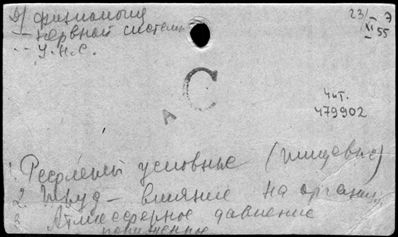 физиолог
нервной системы
У.Н.С.
23/XI 55
С
А
Чит.
479902
1. Рефлексы условные (пищевые)
2. Труд - влияние на организм
3. Атмосферное давление
пониженное